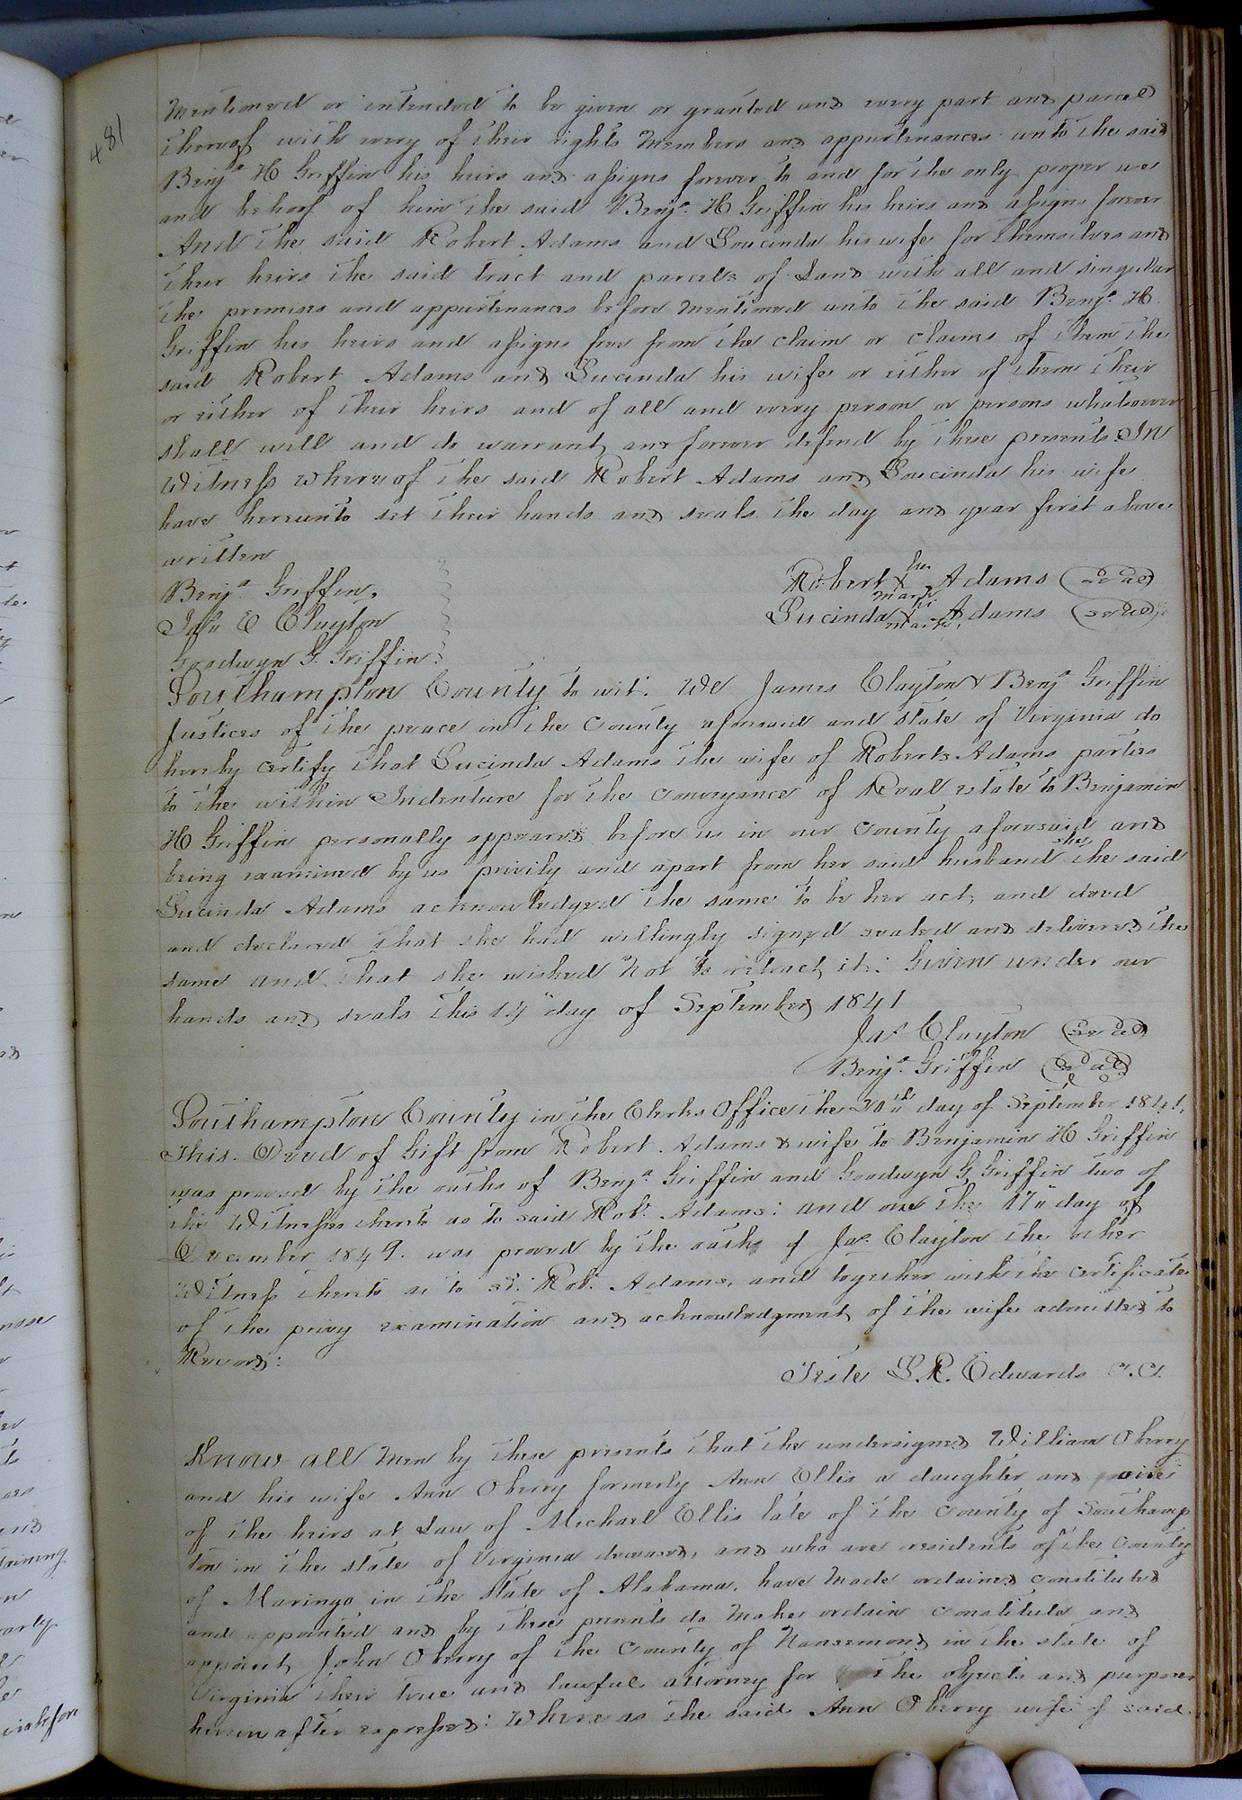 481
Mentioned or intended to be given or granted and every part and parcel
thereof with every of their rights Members and appurtenances unto the said
Benjª H Griffin his heirs and assigns forever to and for the only proper use
and behoof of him the said Benjª H Griffin his heirs and assigns forever
And the said Robert Adams and Loucinda his wife for themselves and
their heirs the said tract and parcels of Land with all and singular
the premises and appurtenances before mentioned unto the said Benjª H
Griffin his heirs and assigns free from the claim or claims of them the
said Robert Adams and Lucinda his wife or either of them their
or either of their heirs and of all and every person or persons whatsoever
shall will and do warrant and forever defend by these presents In
Witness whereof the said Robert Adams and Loucinda his wife
have hereunto set their hands and seals the day and year first above
written
Benjª Griffin
Jaˢ Clayton
Goodwyn G. Griffin
Robert his X mark Adams (seal)
Lucinda her X mark Adams (seal)
Southampton County to wit: We James Clayton & Benjª Griffin
Justices of the peace in the County aforesaid and state of Virginia do
hereby certify that Lucinda Adams the wife of Robert Adams parties
to the within Indenture for the conveyance of Real estate to Benjamin
H Griffin personally appeared before us in our County aforesaid and
being examined by us privily and apart from her said husband she the said
Lucinda Adams acknowledged the same to be her act, and deed
and declared that she had willingly signed sealed and delivered the
same and that she wished not to retract it: Given under our
hands and seals this 14 day of September 1841
Jaˢ Clayton (seal)
Benjª Griffin (seal)
Southampton County in the Clerks Office the 20th day of September 1841,
This Deed of Gift from Robert Adams & wife to Benjamin H Griffin
was proved by the oaths of Benjª Griffin and Goodwyn G Griffin two of
the Witnesses thereto as to said Robᵗ Adams: and on the 17" day of
December 1849. was proved by the oaths of Jaˢ Clayton the other
Witness thereto as to sᵈ. Robᵗ. Adams, and together with the certificate
of the privy examination and acknowledgment of the wife admitted to
Record:
Teste L. R. Edwards C.C.
Know all Men by these presents that the undersigned William Oberry
and his wife Ann Oberry formerly Ann Ellis a daughter and one
of the heirs at Law of Michael Ellis late of the County of Southamp
ton in the state of Virginia deceased, and who are residents of the County
of Maringo in the State of Alabama, have Made ordained constituted
and appointed and by these presents do Make ordain constitute and
appoint John Oberry of the County of Nansemond in the state of
Virginia their true and lawful attorney for the objects and purposes
herein after expressed: Where as the said Ann Oberry wife of said